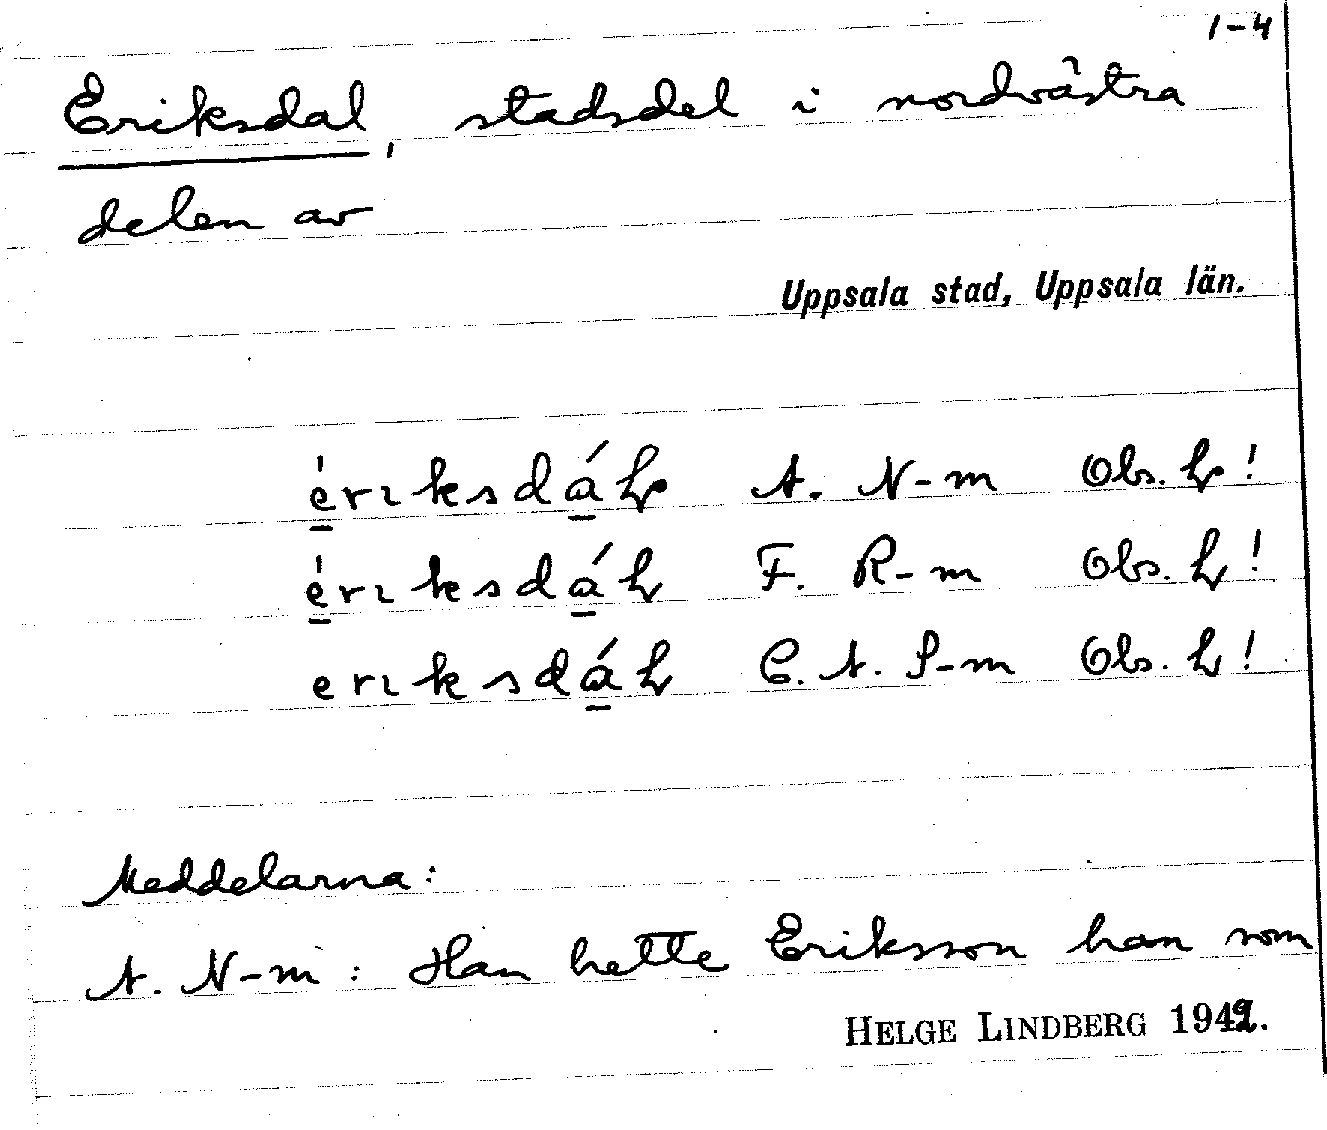 1-4
Eriksdal, stadsdel i nordvästra
delen av
Uppsala stad, Uppsala län.
A. N-m Obs.
F. R-m Obs.
C. A. S-m Obs.
Meddelarna:
A. N-m: Han hette Eriksson han som
HELGE LINDBERG 194